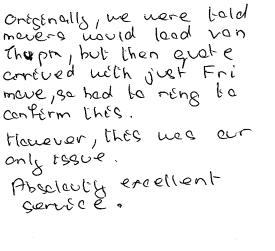 Originally, we were told
movers would load van
Thupm, but then quote
arrived with just Fri
move, so had to ring to
confirm this.
However, this was our
only issue.
Absolutly excellent
service.